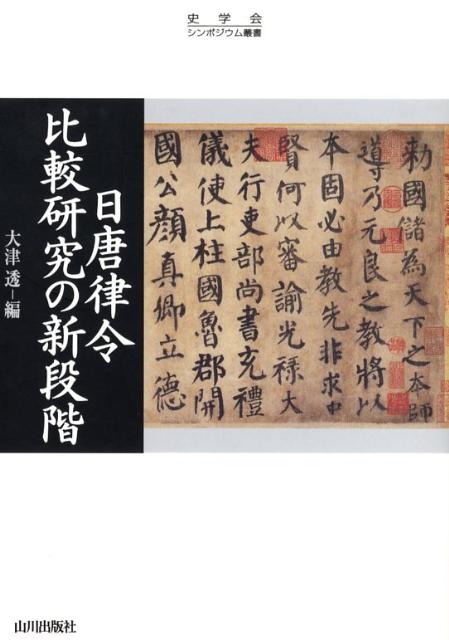 史学会
シンポジウム叢書
日唐律令
比較研究の新段階
大津 透-編
勅國儲為天下之本師
導乃元良之教將以
本固必由教先非求中
賢何以審諭光祿大
夫行吏部尚書充禮
儀使上柱國魯郡開
國公顏真卿立德
山川出版社